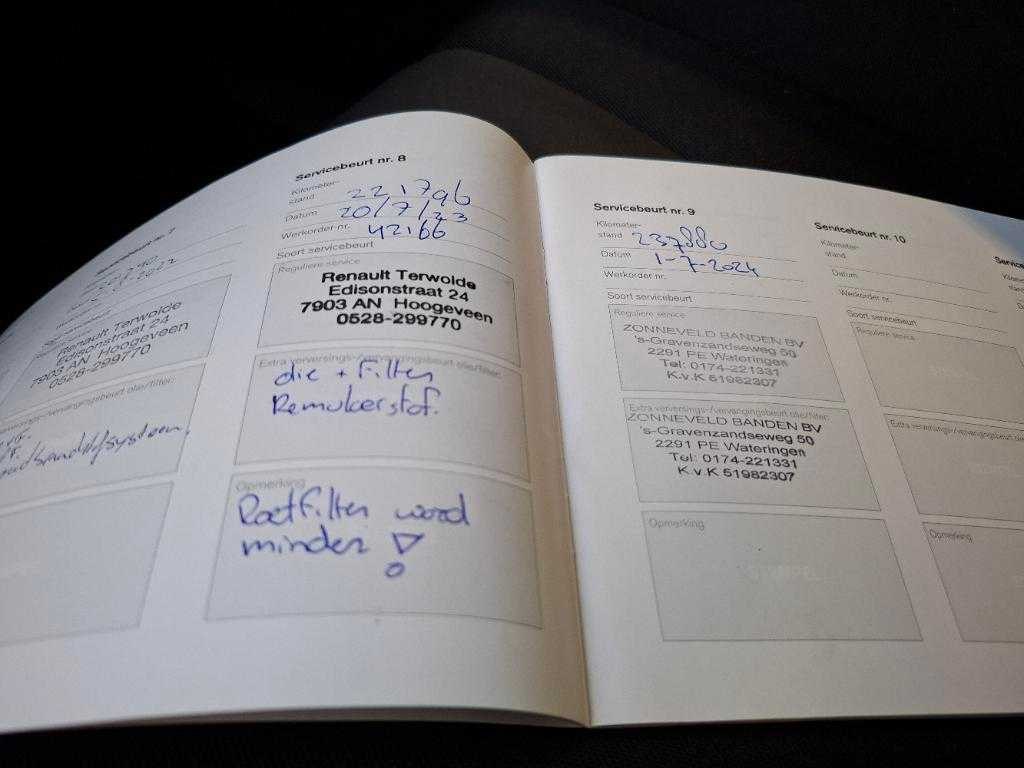 Servicebeurt nr. 7
Renault Terwolde
Edisonstraat 24
7903 AN Hoogeveen
0528-299770
Servicebeurt nr. 8
Kilometer-
stand 221796
Datum 20/7/23
Werkorder-nr. 42166
Soort servicebeurt
Reguliere service
Renault Terwolde
Edisonstraat 24
7903 AN Hoogeveen
0528-299770
Extra verversings-/vervangingsbeurt olie/filter:
olie + Filter
Remvloeistof.
Opmerking
Roetfilter word
minder !
Servicebeurt nr. 9
Kilometer-
stand 237880
Datum 1-7-2024
Werkorder nr.
Soort servicebeurt
Reguliere service
ZONNEVELD BANDEN BV
's-Gravenzandseweg 50
2291 PE Wateringen
Tel: 0174-221331
K.v.K 51982307
Extra verversings-/vervangingsbeurt olie/filter:
ZONNEVELD BANDEN BV
's-Gravenzandseweg 50
2291 PE Wateringen
Tel: 0174-221331
K.v.K 51982307
Opmerking
STEMPEL
Servicebeurt nr. 10
Kilometer-
stand
Datum
Werkorder nr.
Soort servicebeurt
Reguliere service
STEMPEL
Extra verversings-/vervangingsbeurt olie
Opmerking